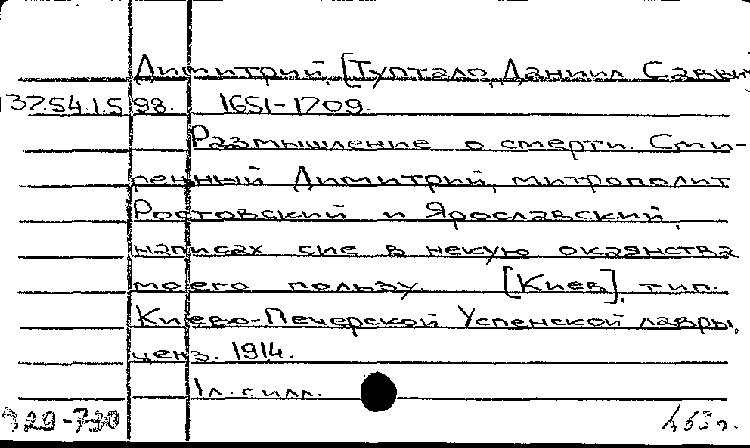 Димитрий, [Туптало, Даниил Саввич
37.54.1.5 98. 1651-1709.
Размышление о смерти. Сми-
ренный Димитрий, митрополит
Ростовский и Ярославский,
написах сие в некую окаянства
моего пользу. [Киев], тип.
Киево-Печерской Успенской лавры,
ценз. 1914.
1 л. с илл.
929-730